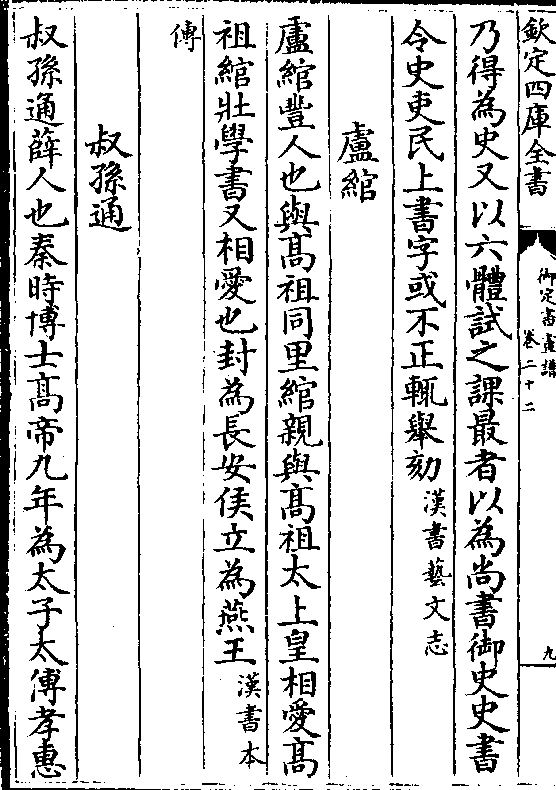 欽定四庫全書
御定書畫譜
卷二十二
九
乃得為史又以六體試之課最者以為尚書御史史書
令史吏民上書字或不正輒舉劾漢書藝文志
盧綰
盧綰豐人也與髙祖同里綰親與髙祖太上皇相愛髙
祖綰壯學書又相愛也封為長安侯立為燕王漢書本
傳
叔孫通
叔孫通薛人也秦時博士髙帝九年為太子太傅孝惠